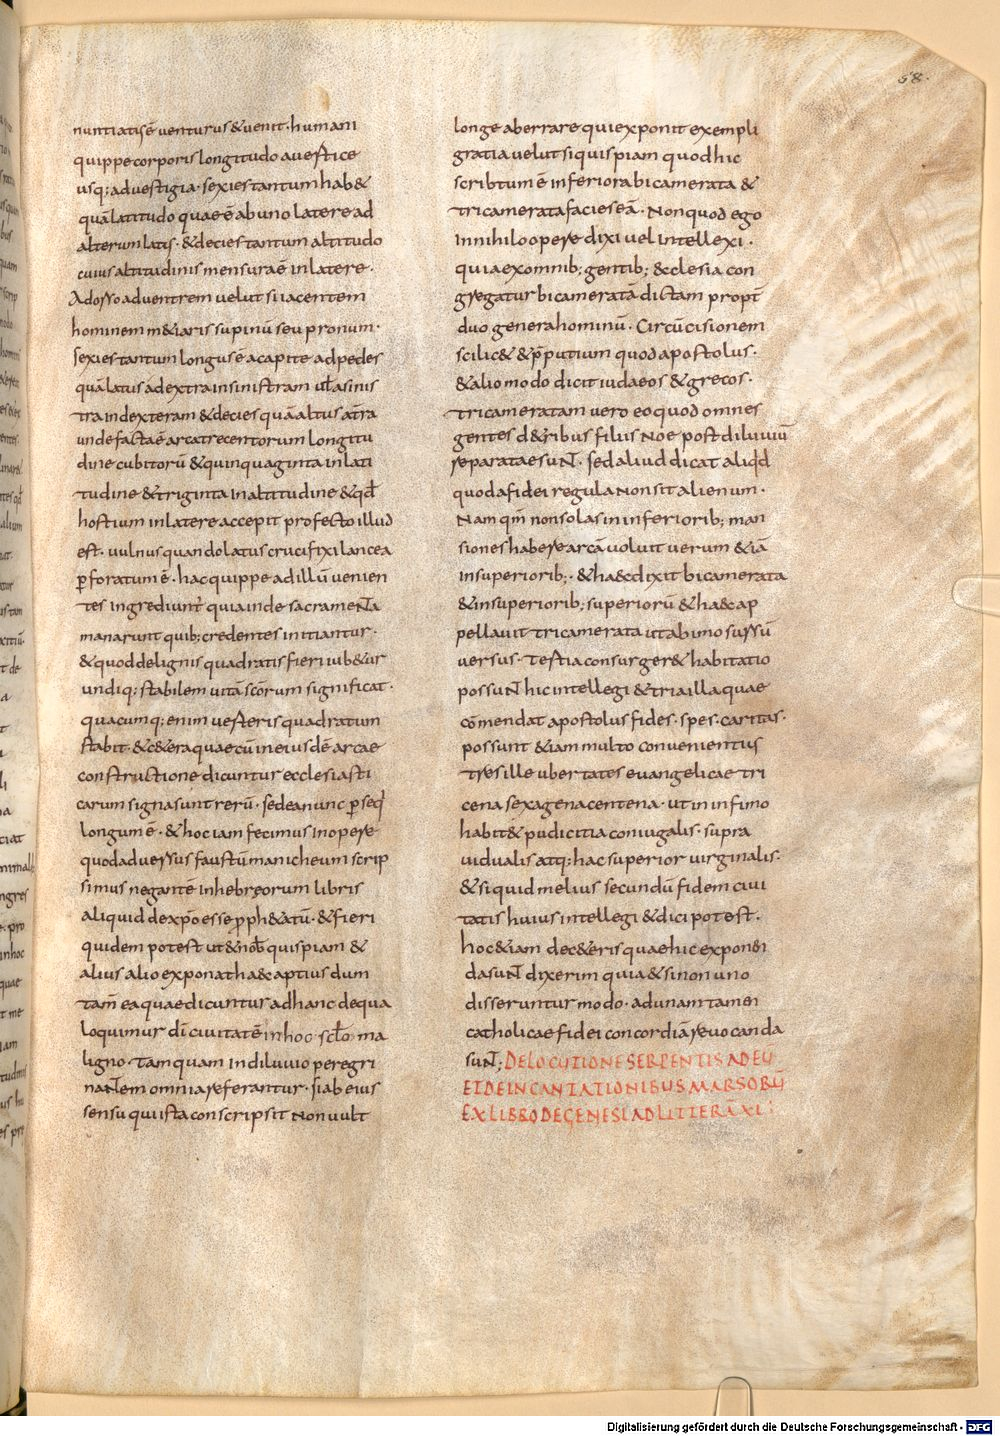 58.
nuntiatis ē venturus & venit · humani
quippe corporis longitudo a vertice
usq; ad vestigia · sexies tantum hab&
quā latitudo quae ē ab uno latere ad
alterum latis · & decies tantum altitudo
cuius altitudinis mensura ē in latere ·
A dosso ad ventrem velut si iacentem
hominem m&iaris supinū seu pronum ·
sexies tantum longus ē a capite ad pedes
quā latus a dextra in sinistram ul̄ a sinis
tra in dexteram & decies quā altus a t̄ra
unde facta ē arca trecentorum longitu
dine cubitorū & quinquaginta in lati
tudine & triginta in altitudine & qđ
hostium in latere accepit profecto illud
est · vulnus quando latus crucifixi lancea
ꝑforatum ē · hac quippe ad illū venien
tes ingrediunt̄ quia inde sacramenta
manarunt quib; credentes initiantur ·
& quod de lignis quadratis fieri iub&ur
undiq; stabilem vitā sc̄orum significat ·
quacumq; enim verteris quadratum
stabit · & c&era quae cū in eiusdē arcae
constructione dicuntur ecclesiasti
carum signa sunt rerū · sed ea nunc ꝑseq̄
longum ē · & hoc iam fecimus in opere
quod adversus faustū manicheum scrip
simus negantē in hebreorum libris
aliquid de xp̄o esse ꝓph&atū · & fieri
quidem potest ut & nob̄ quispiam &
alius alio exponat haec aptius dum
tam̄ ea quae dicuntur ad hanc de qua
loquimur dī civitatē in hoc sc̄lo ma
ligno · tam quam in diluvio peregri
nantem omnia referantur · si ab eius
sensu qui ista conscripsit non vult
longe aberrare qui exponit exempli
gratia velut si quispiam quod hic
scribtum ē inferiora bicamerata &
tricamerata facies eā · Non quod ego
In nihilo opere dixi vel intellexi ·
quia ex omnib; gentib; &clesia con
gregatur bicameratā dictam propt̄
duo genera hominū · Circūcisionem
scilic& & p̄putium quod apostolus ·
& alio modo dicit iudaeos & grecos ·
tricameratam vero eo quod omnes
gentes de tribus filiis Noe post diluviū
reparatae sunt · sed aliud dicat aliqđ
quod a fidei regula non sit alienum ·
Nam qm̄ non solas in inferiorib; man
siones habere arcā voluit verum &iā
in superiorib; · & haec dixit bicamerata
& in superiorib; superiorū & haec ap
pellavit tricamerata ut ab imo sussū
versus · tertia consurger& habitatio
possunt hic intellegi & tria illa quae
cōmendat apostolus fides · spes · caritas ·
possunt &iam multo convenientius
tres ille ubertates evangelicae tri
cena sexagena centena · ut in infimo
habit& pudicitia coniugalis · supra
vidualis atq; hac superior virginalis ·
& si quid melius secundū fidem civi
tatis huius intellegi & dici potest ·
hoc &iam de c&eris quae hic exponen
da sunt dixerim quia & si non uno
disseruntur modo · ad unam tamen
catholicae fidei concordiā revocanda
sunt; DE LOCUTIONE SERPENTIS AD EŪ
ET DE INCANTATIONIBUS MARSORŪ
EX LIBRO DE GENESI AD LITTERĀ XI :
Digitalisierung gefördert durch die Deutsche Forschungsgemeinschaft - DFG